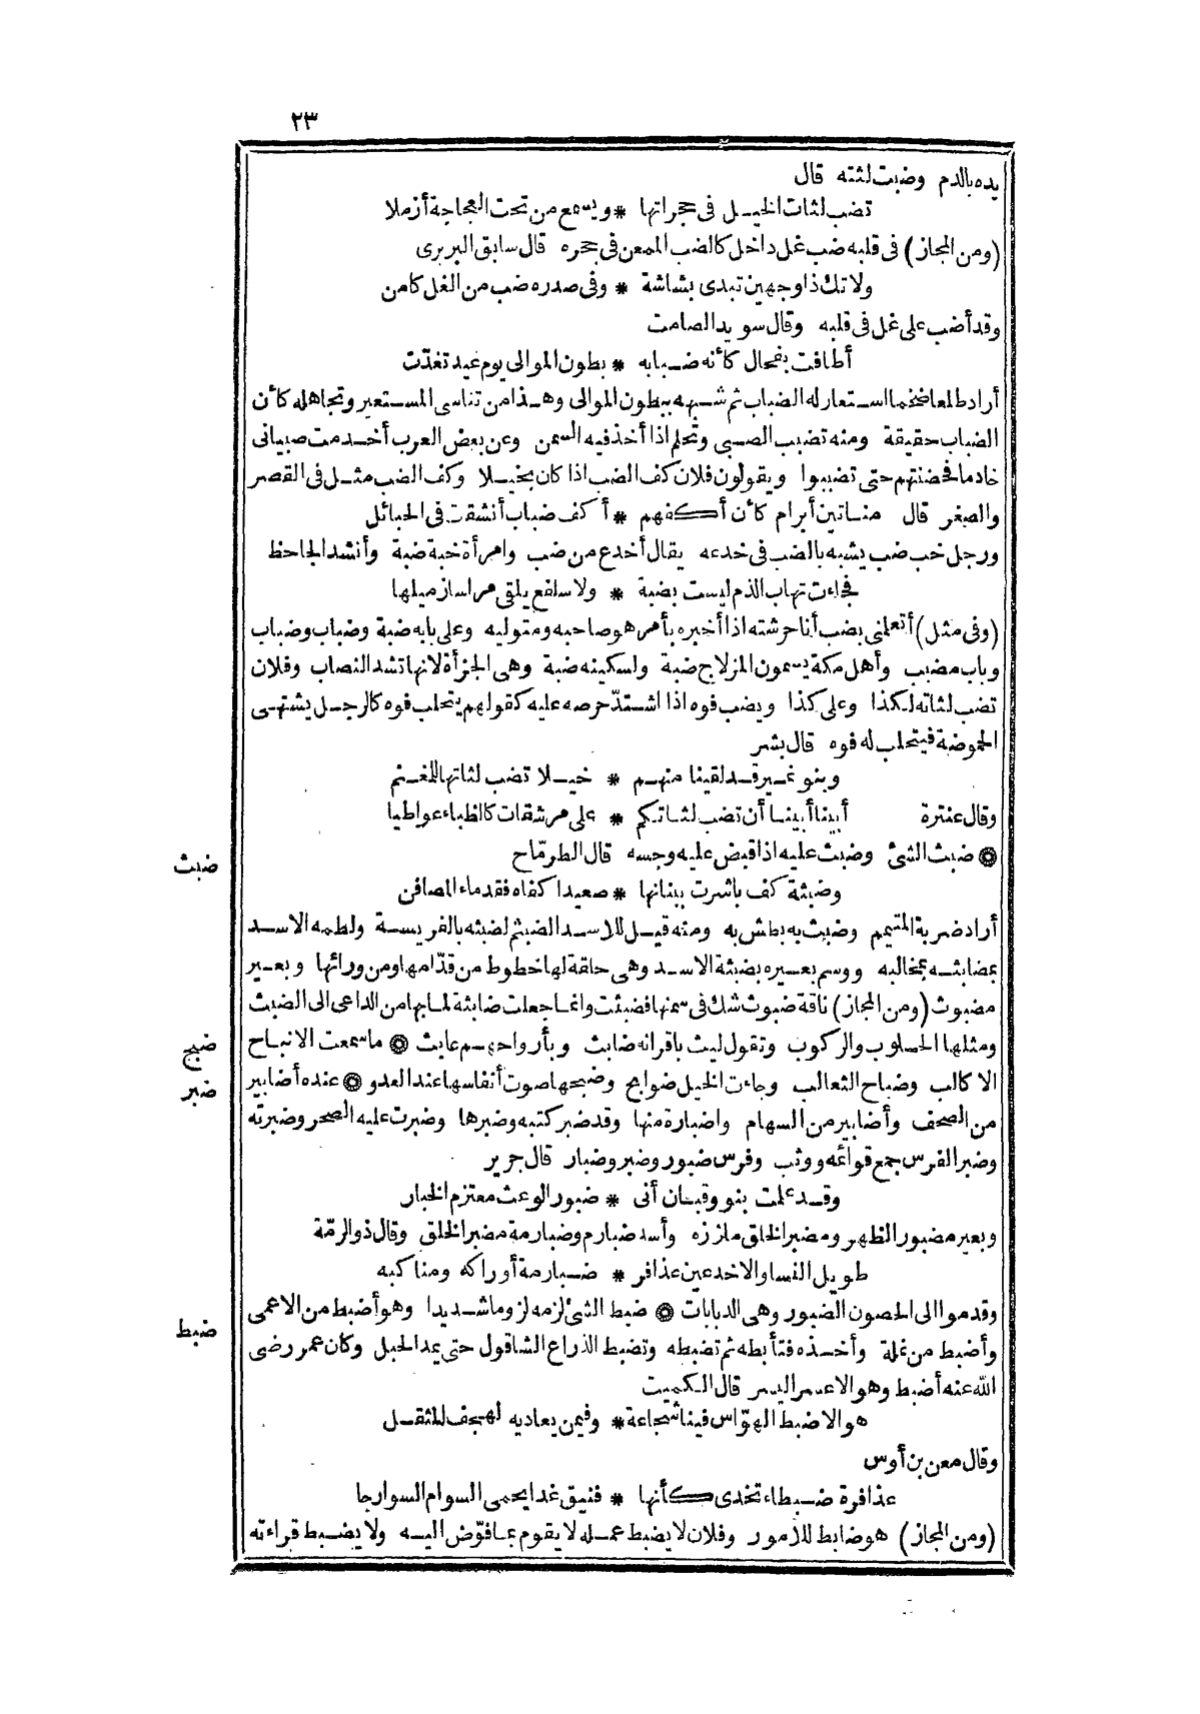 ٢٣
يده بالدم وضبت لثته قال
تضب لثات الخيل فى حجراتها * ويسمع من تحت العجاجة أزملا
(ومن المجاز) فى قلبه ضب غل داخل كالضب الممعن فى جحره قال سابق البربرى
ولا تك ذا وجهين تبدى بشاشة * وفى صدره ضب من الغل كامن
وقد أضب على غل فى قلبه وقال سويد الصامت
أطافت بفحال كأنه ضبابه * بطون الموالى يوم عيد تغدّت
أراد طلعا ضخما استعار له الضباب ثم شبهه ببطون الموالى وهذا من تناسى المستعير وتجاهله كأن
الضباب حقيقة ومنه تضبب الصبى وتحلم اذا أخذ فيه السمن وعن بعض العرب أخدمت صبيانى
خادما فحضنتهم حتى تضببوا ويقولون فلان كف الضب اذا كان بخيلا وكف الضب مثل فى القصر
والصغر قال مناتين أبرام كأن أكفهم * أكف ضباب أنشقت فى الحبائل
ورجل خب ضب يشبه بالضب فى خدعه يقال أخدع من ضب وامرأة خبة ضبة وأنشد الجاحظ
فجاءت تهاب الذم ليست بضبة * ولا سلفع يلقى مراسا زميلها
(وفى مثل) أتعلمنى بضب أنا حرشته اذا أخبره بأمر هو صاحبه ومتوليه وعلى بابه ضبة وضباب وضباب
وباب مضبب وأهل مكة يسمون المزلاج ضبة ولسكينه ضبة وهى الجزأة لانها تشد النصاب وفلان
تضب لثاته لكذا وعلى كذا ويضب فوه اذا اشتدّ حرصه عليه كقولهم يتحلب فوه كالرجل يشتهى
الحموضة فيتحلب له فوه قال بشر
وبنو نمير قد لقينا منهم * خيلا تضب لثاتها للمغنم
وقال عنترة أبينا أبينا أن تضب لثاتكم * على مرشقات كالظباء عواطيا
۞ ضبث الشئ وضبث عليه اذا قبض عليه وجسه قال الطرمّاح
ضبث
وضبثة كف باشرت ببنانها * صعيدا كفاه فقد ماء المصافن
أراد ضربة المتيمم وضبث به بطش به ومنه قيل للاسد الضبثم لضبثه بالفريسة ولطمه الاسد
بمضابثه بمخالبه ووسم بعيره بضبثة الاسد وهى حلقة لها خطوط من قدّامها ومن ورائها وبعير
مضبوث (ومن المجاز) ناقة ضبوث شك فى سمنها فضبثت وانما جعلت ضابثة لما بها من الداعى الى الضبث
ومثلها الحلوب والركوب وتقول ليث باقرانه ضابث وبأرواحهم عابث ۞ ما سمعت الا نباح
ضبح
الاكالب وضباح الثعالب وجاءت الخيل ضوابح وضبحها صوت أنفاسها عند العدو ۞ عنده أضابير
ضبر
من الصحف وأضابير من السهام واضبارة منها وقد ضبر كتبه وضبرها وضبرت عليه الصخر وضبرته
وضبر الفرس جمع قوائمه ووثب وفرس ضبور وضبر وضبار قال جرير
وقد علمت بنو وقبان أنى * ضبور الوعث معتزم الخبار
وبعير مضبور الظهر ومضبر الخلق ملززه وأسد ضبارم وضبارمة مضبر الخلق وقال ذو الرمّة
طويل النسا والاخدعين عذافر * ضبارمة أوراكه ومناكبه
وقدموا الى الحصون الضبور وهى الدبابات ۞ ضبط الشئ لزمه لزوما شديدا وهو أضبط من الاعمى
ضبط
وأضبط من نملة وأخذه فتأبطه ثم تضبطه وتضبط الذراع الشاقول حتى يمد الحبل وكان عمر رضى
الله عنه أضبط وهو الاعسر اليسر قال الكميت
هو الاضبط الهوّاس فينا شجاعة * وفيمن يعاديه الهجف المثقل
وقال معن بن أوس
عذافرة ضبطاء تخدى كأنها * فنيق غدا يحمى السوام السوارحا
(ومن المجاز) هو ضابط للامور وفلان لا يضبط عمله لا يقوم بما فوّض اليه ولا يضبط قراءته